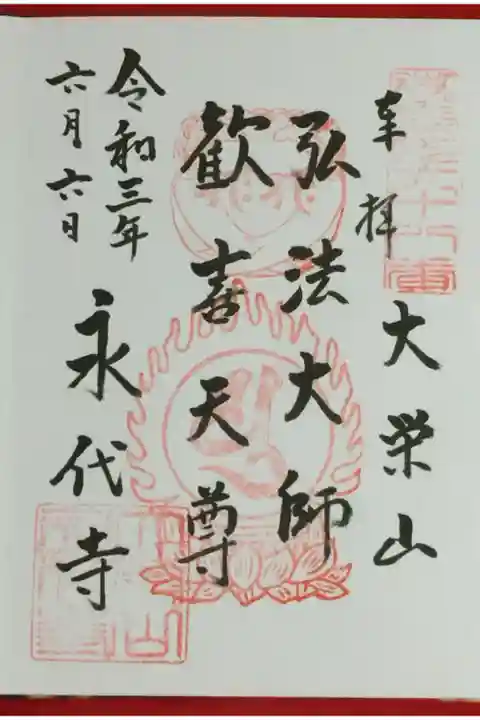 奉拝
大栄山
弘法大師
歓喜天尊
令和三年
六月六日
永代寺